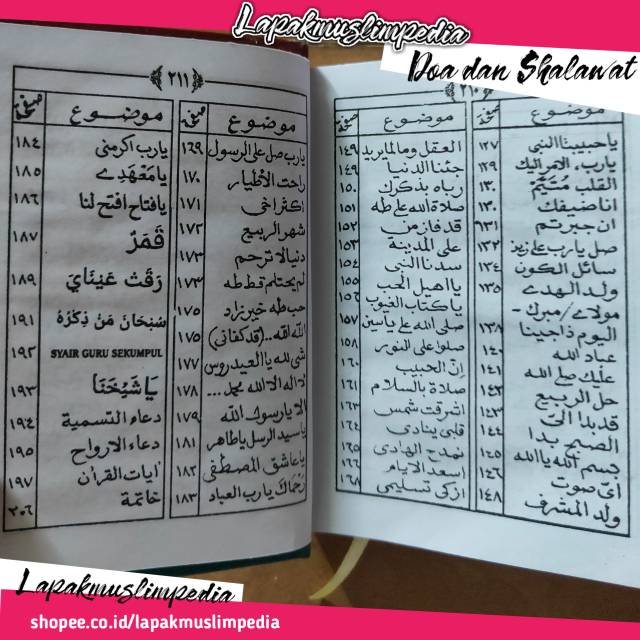 Lapakmuslimpedia
Doa dan Shalawat
٢١٠
موضوع صفحة
يا حبيبنا النبي ١٢٧
يارب، ١٢٩
القلب مُتَيَّمٌ ١٣٠
انا ضيفك ١٣٠
ان جبرتم
صل يارب على زين ١٣٢
سائل الكون ١٣٤
ولد الهدى ١٣٥
مولاي / مبرك -
اليوم ذاجينا ١٣٨
عباد الله ١٤٠
عليك صلى الله ١٤١
حل الربيع ١٤٣
قد بدا ١٤٣
الصبح بدا ١٤٤
بسم الله يا الله ١٤٥
اي صوت ١٤٦
ولد المشرف ١٤٨
موضوع صفحة
العقل وما لا يريد ١٤٩
جئنا الدنيا ١٤٩
رباه بذكرك ١٥٠
صلاة الله على طه ١٥١
قد فاز من ١٥٢
على المدينة ١٥٣
سيدنا النبي ١٥٤
يا اهيل الحب ١٥٥
يا كتاب الغيوب ١٥٦
صلى الله على ياسين ١٥٧
صلوا على النور ١٥٨
انّ الحبيب ١٦٠
صلاة بالسلام ١٦١
اشرقت شمس ١٦٣
قلبي ينادي ١٦٤
نمدح الهادي ١٦٥
اسعد الايام ١٦٦
ازكى تسليمى ١٦٨
٢١١
موضوع صفحة
يارب صل على الرسول ١٦٩
راحت الأطيار ١٧٠
اكثر اخي ١٧١
شهر الربيع ١٧٢
دنيا لا ترحم ١٧٣
لم يحتلم قط طه ١٧٣
حب طه خير زاد ١٧٥
الله الله.. (قد كفاني) ١٧٥
شي لله يا العيدروس ١٧٧
لا اله الا الله محمد ... ١٧٨
الا يا رسول الله ١٧٩
يا سيد الرسل يا طاهر ١٨١
يا عاشق المصطفى ١٨٢
رُحْمَاكَ يا رب العباد ١٨٣
موضوع صفحة
يارب اكرمني ١٨٤
يَا مَعْهَدِي ١٨٥
يا فتاح افتح لنا ١٨٦
قَمَرٌ ١٨٧
رَقَّتْ عَيْنَايَ ١٨٩
سُبْحَانَ مَنْ ذِكْرُهُ ١٩١
SYAIR GURU SEKUMPUL ١٩٢
يَا شَيْخَنَا ١٩٣
دعاء التسمية ١٩٤
دعاء الارواح ١٩٥
آيات القرآن ١٩٧
خاتمة ٢٠٦
Lapakmuslimpedia
shopee.co.id/lapakmuslimpedia